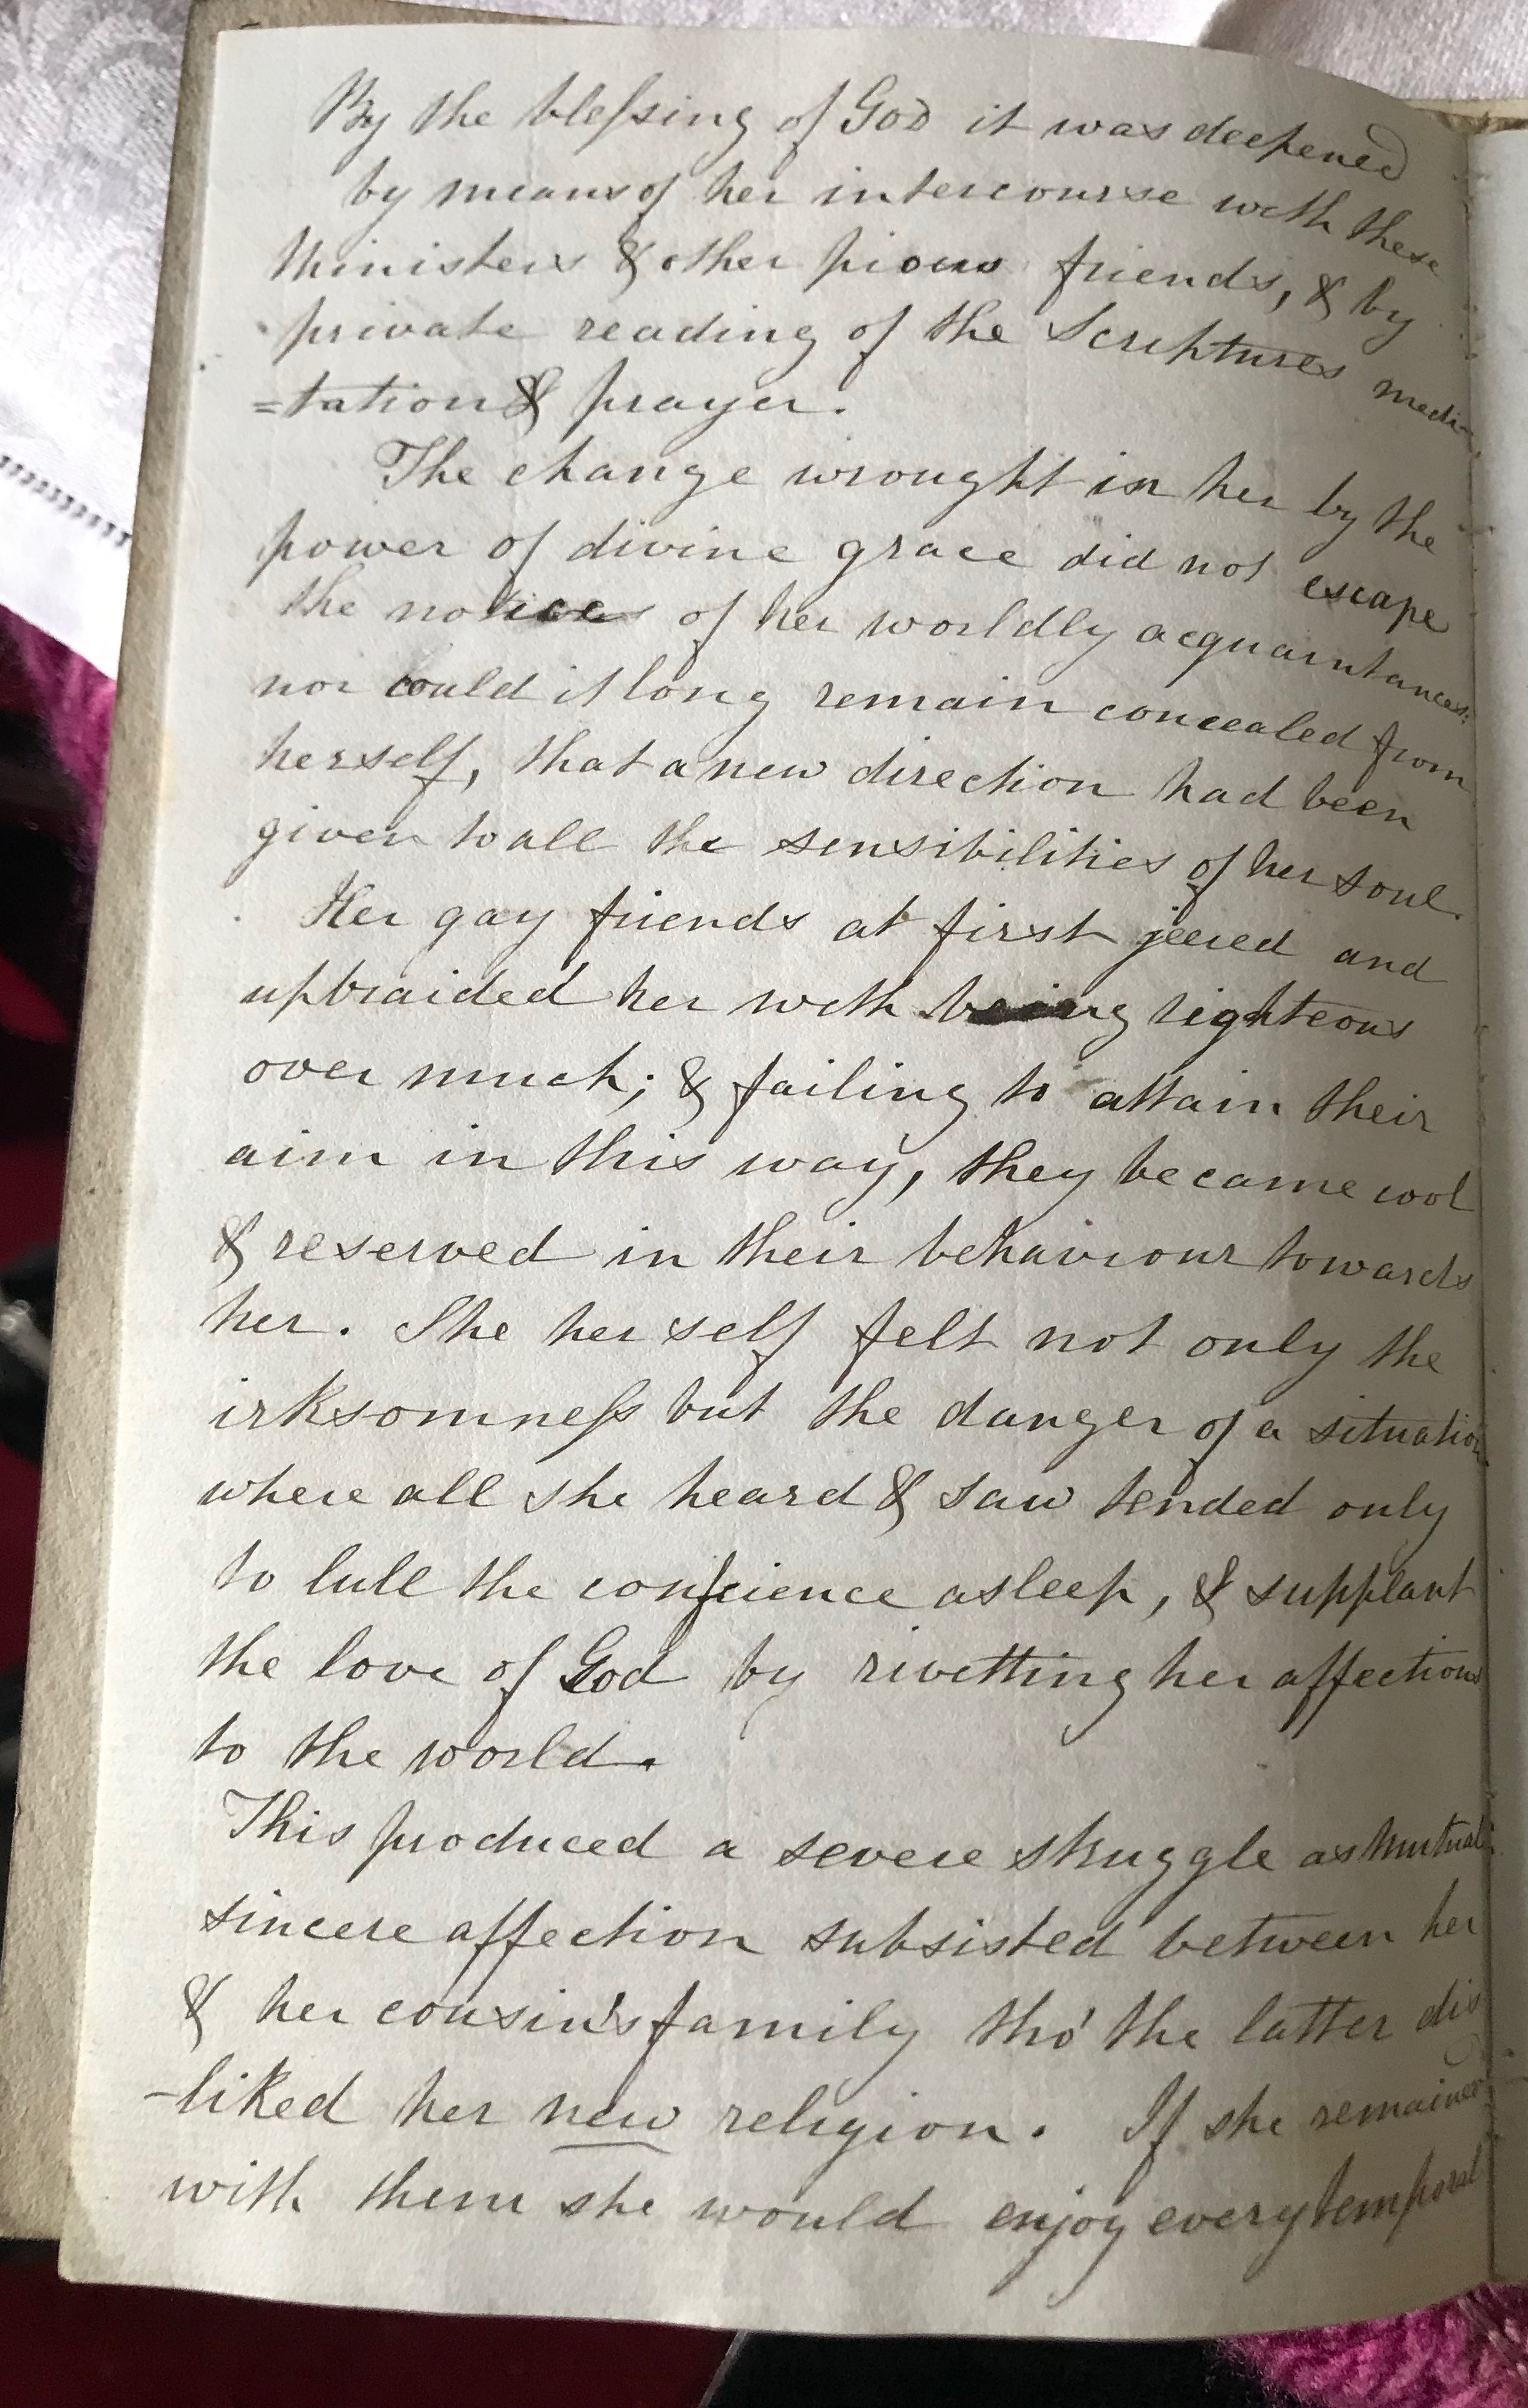 By the bleſsing of God it was deepened
by means of her intercourse with these
Ministers & other pious friends, & by
private reading of the Scriptures medi-
=tation & prayer.
The change wrought in her by the
power of divine grace did not escape
the notice of her worldly acquaintances:
nor could it long remain concealed from
herself, that a new direction had been
given to all the sensibilities of her soul.
Her gay friends at first jeered and
upbraided her with being righteous
over much; & failing to attain their
aim in this way, they became cool
& reserved in their behaviour towards
her. She herself felt not only the
irksomneſs but the danger of a situation
where all she heard & saw tended only
to lull the conſcience asleep, & supplant
the love of God by rivetting her affections
to the world.
This produced a severe struggle as mutual
sincere affection subsisted between her
& her cousin's family tho' the latter dis
-liked her new religion. If she remained
with them she would enjoy every temporal